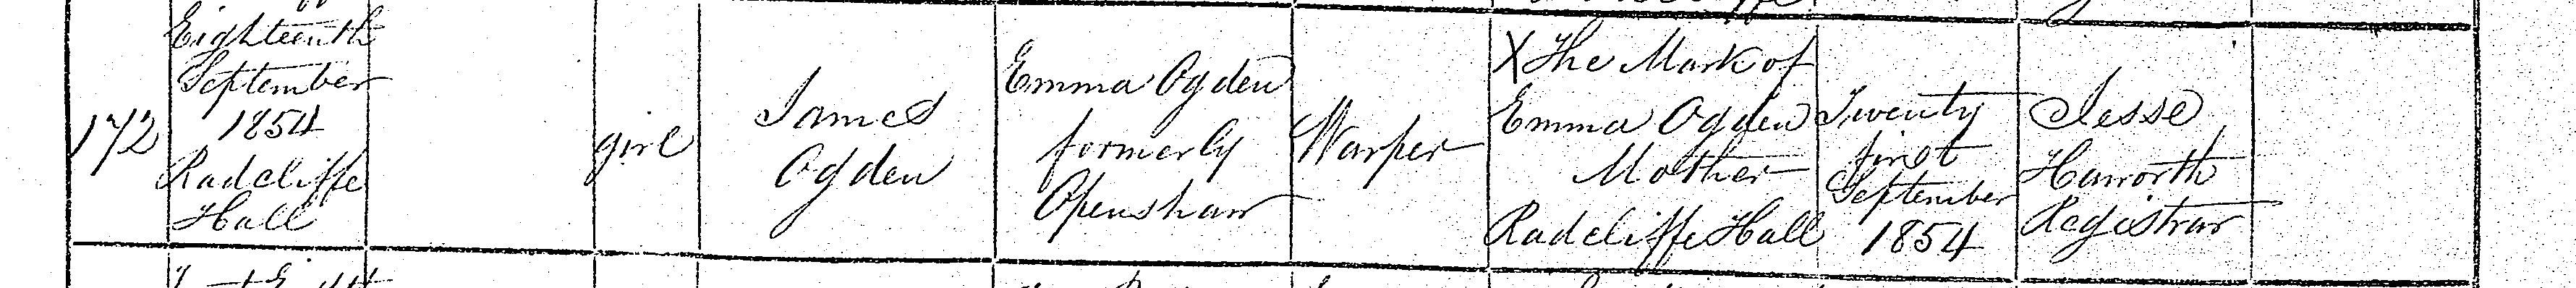 172
Eighteenth
September
1854
Radcliffe
Hall
girl
James
Ogden
Emma Ogden
formerly
Openshaw
Warper
X The Mark of
Emma Ogden
Mother
Radcliffe Hall
Twenty
first
September
1854
Jesse
Haworth
Registrar